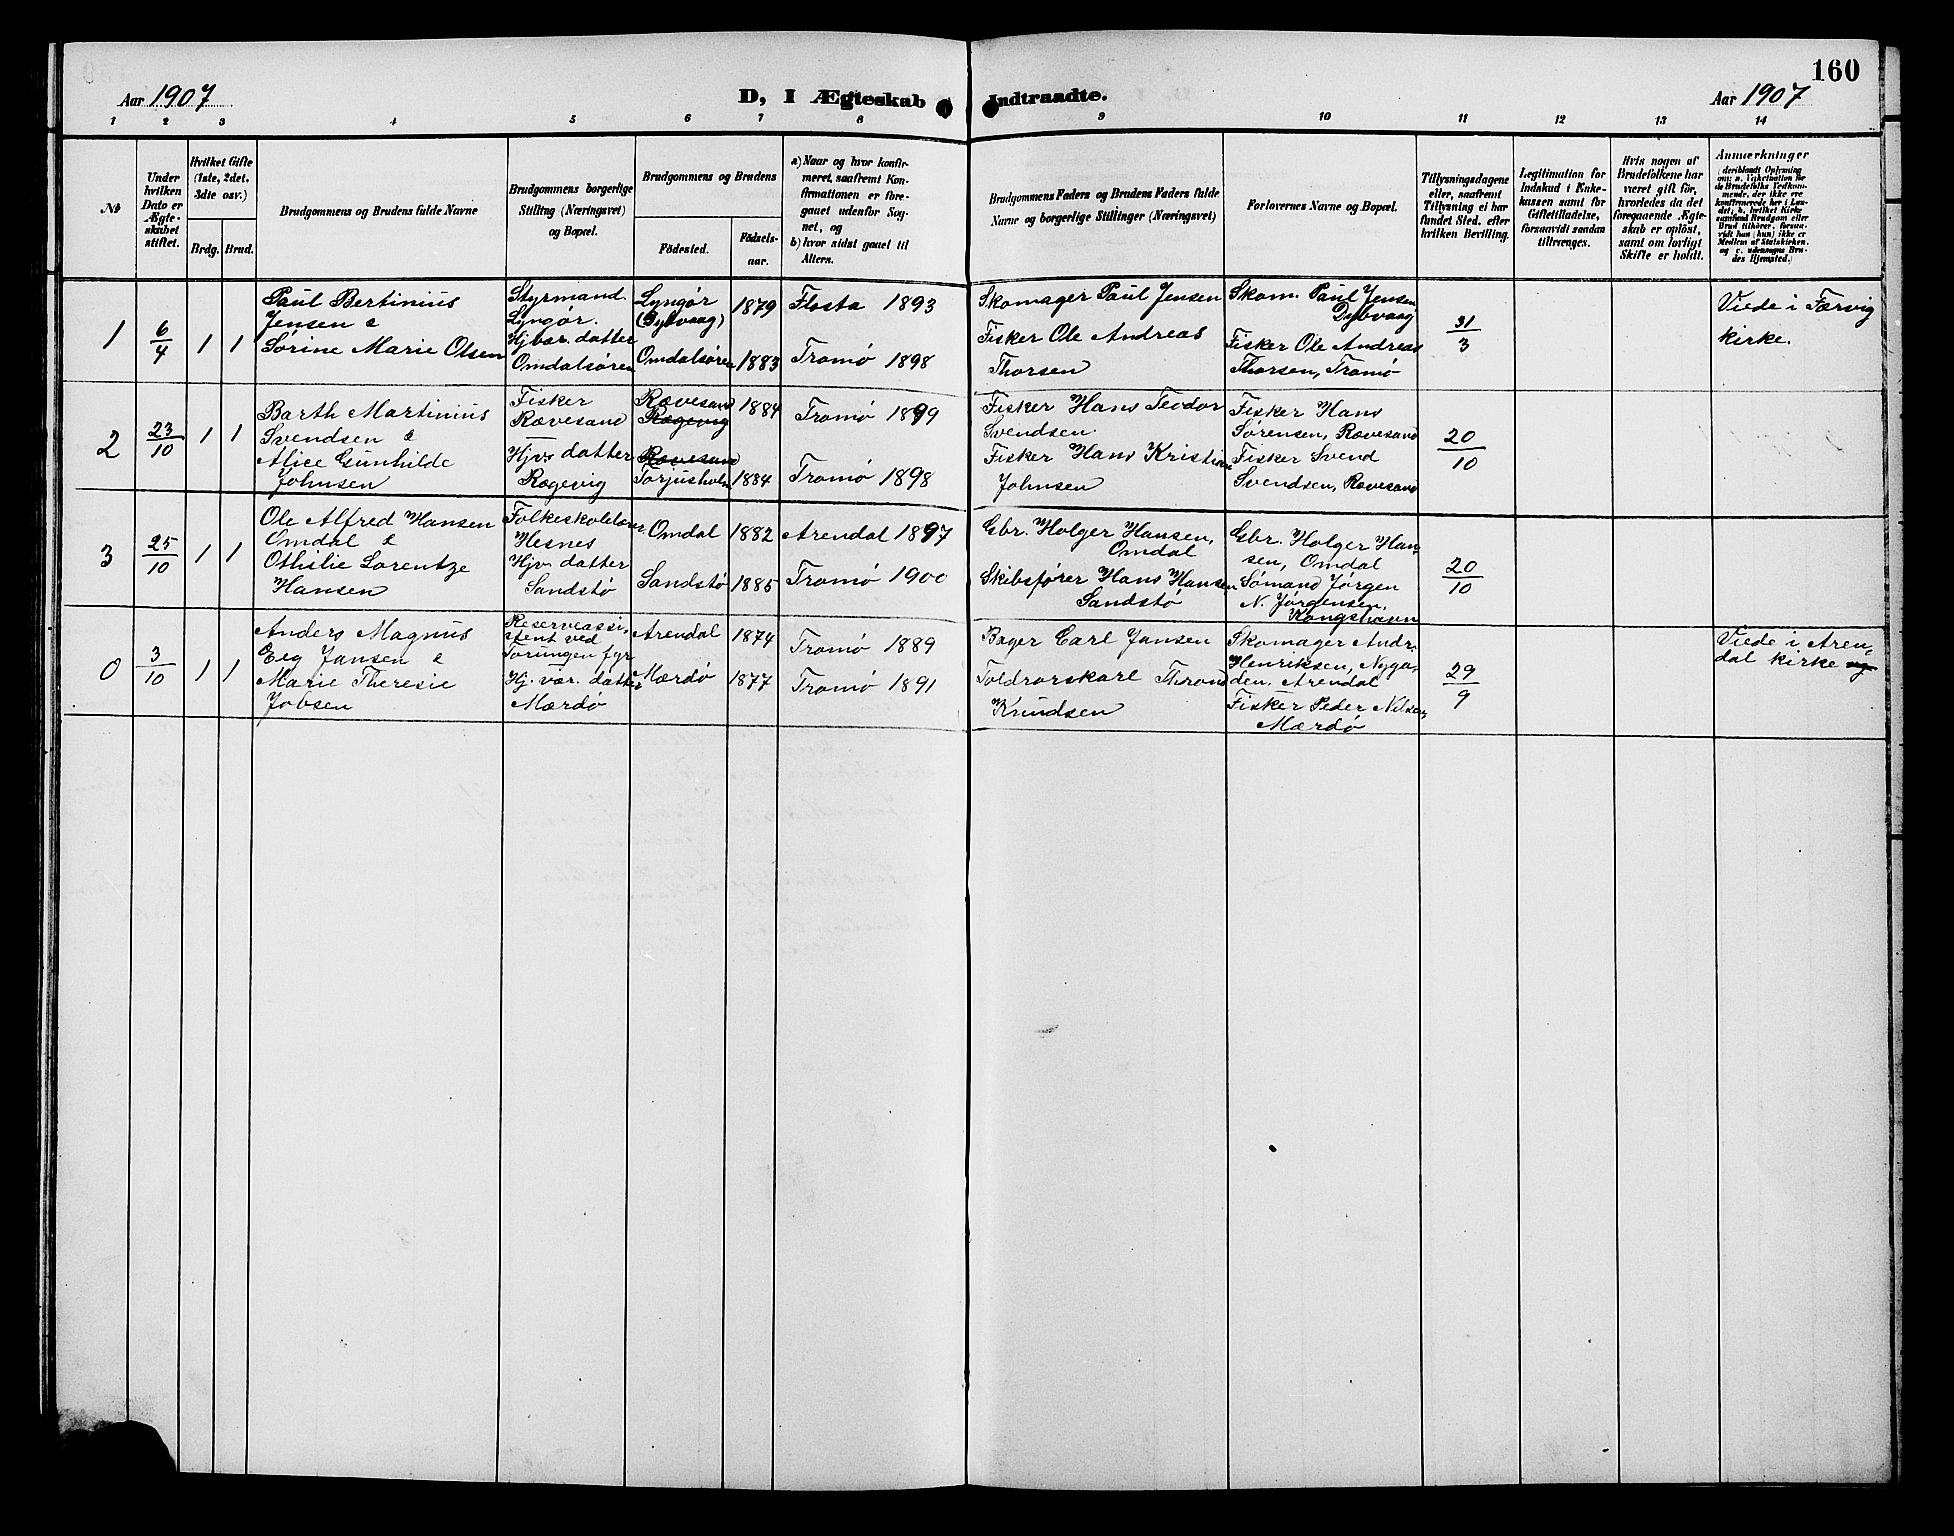 160
Aar 1907
D, I Ægteskab Indtraadte.
Aar 1907
1 2 3 4 5 6 7 8 9 10 11 12 13 14
No
Under
hvilken
Dato er
Ægte-
skabet
stiftet.
Hvilket Gifte
(1ste, 2det,
3die osv.)
Brdg. Brud.
Brudgommens og Brudens fulde Navne
Brudgommens borgerlige
Stilling (Næringsvei)
og Bopæl.
Brudgommens og Brudens
Fødested.
Fødsels-
aar.
a) Naar og hvor konfir-
meret, saafremt Kon-
firmationen er fore-
gaaet udenfor Sog-
net, og
b) hvor sidst gaaet til
Alters.
Brudgommens Faders og Brudens Faders fulde
Navne og borgerlige Stillinger (Næringsvei)
Forlovernes Navne og Bopæl.
Tillysningsdagene
eller, saafremt
Tillysning ei har
fundet Sted, efter
hvilken Bevilling.
Legitimation for
Indskud i Enke-
kassen samt for
Giftetilladelse,
forsaavidt saadan
tiltrænges.
Hvis nogen af
Brudefolkene har
været gift før,
hvorledes da det
foregaaende Ægte-
skab er opløst,
samt om lovligt
Skifte er holdt.
Anmærkninger
(deriblandt Oplysning
om: a. Vakcination for
de Brudefolks Vedkom-
mende, der ikke ere
konfirmerede her i Lan-
det; b. hvilket Kirke-
samfund Brudgom eller
Brud tilhører, forsaa-
vidt han (hun) ikke er
Medlem af Statskirken,
og c. udensogns Bru-
des Hjemsted.)
1
6/4
1 1
Paul Bertinius
Jensen &
Sørine Marie Olsen
Styrmand.
Lyngør.
Hjvær. datter
Omdalsøren
Lyngør
(Dybvaag)
Omdalsøren
1879
1883
Flosta 1893
Tromø 1898
Skomager Paul Jensen
Fisker Ole Andreas
Thorsen
Skom. Paul Jensen
Dybvaag
Fisker Ole Andreas
Thorsen, Tromø
31/3
Viede i Færvig
kirke.
2
23/10
1 1
Barth Martinius
Svendsen &
Alice Gunhilde
Johnsen
Fisker
Rævesand
Hjv. datter
Rægevig
Rævesand
Rægevig
Rævesand
Torjusholm
1884
1884
Tromø 1899
Tromø 1898
Fisker Hans Teodor
Svendsen.
Fisker Hans Kristian
Johnsen
Fisker Hans
Sørensen, Rævesand
Fisker Svend
Svendsen, Rævesand
20/10
3
25/10
1 1
Ole Alfred Hansen
Omdal &
Othilie Lorentze
Hansen
Folkeskolelærer
Hesnes
Hjv. datter
Sandstø
Omdal
Sandstø
1882
1885
Arendal 1897
Tromø 1900
Gbr. Holger Hansen,
Omdal
Skibsfører Hans Hansen
Sandstø
Gbr. Holger Han-
sen, Omdal
Sømand Jørgen
N. Jørgensen,
Kongshavn
20/10
0
3/10
1 1
Anders Magnus
Eeg Jansen &
Marie Theresie
Jobsen
Reserveassi-
stent ved
Torungen fyr
Hj. vær. datter
Mærdø
Arendal
Mærdø
1874
1877
Tromø 1889
Tromø 1891
Bager Carl Jansen
Toldrorskarl Thrond
Knudsen
Skomager Andr.
Henriksen, Nyga-
den, Arendal
Fisker Peder Nilsen,
Mærdø
29/9
Viede i Aren-
dal kirke